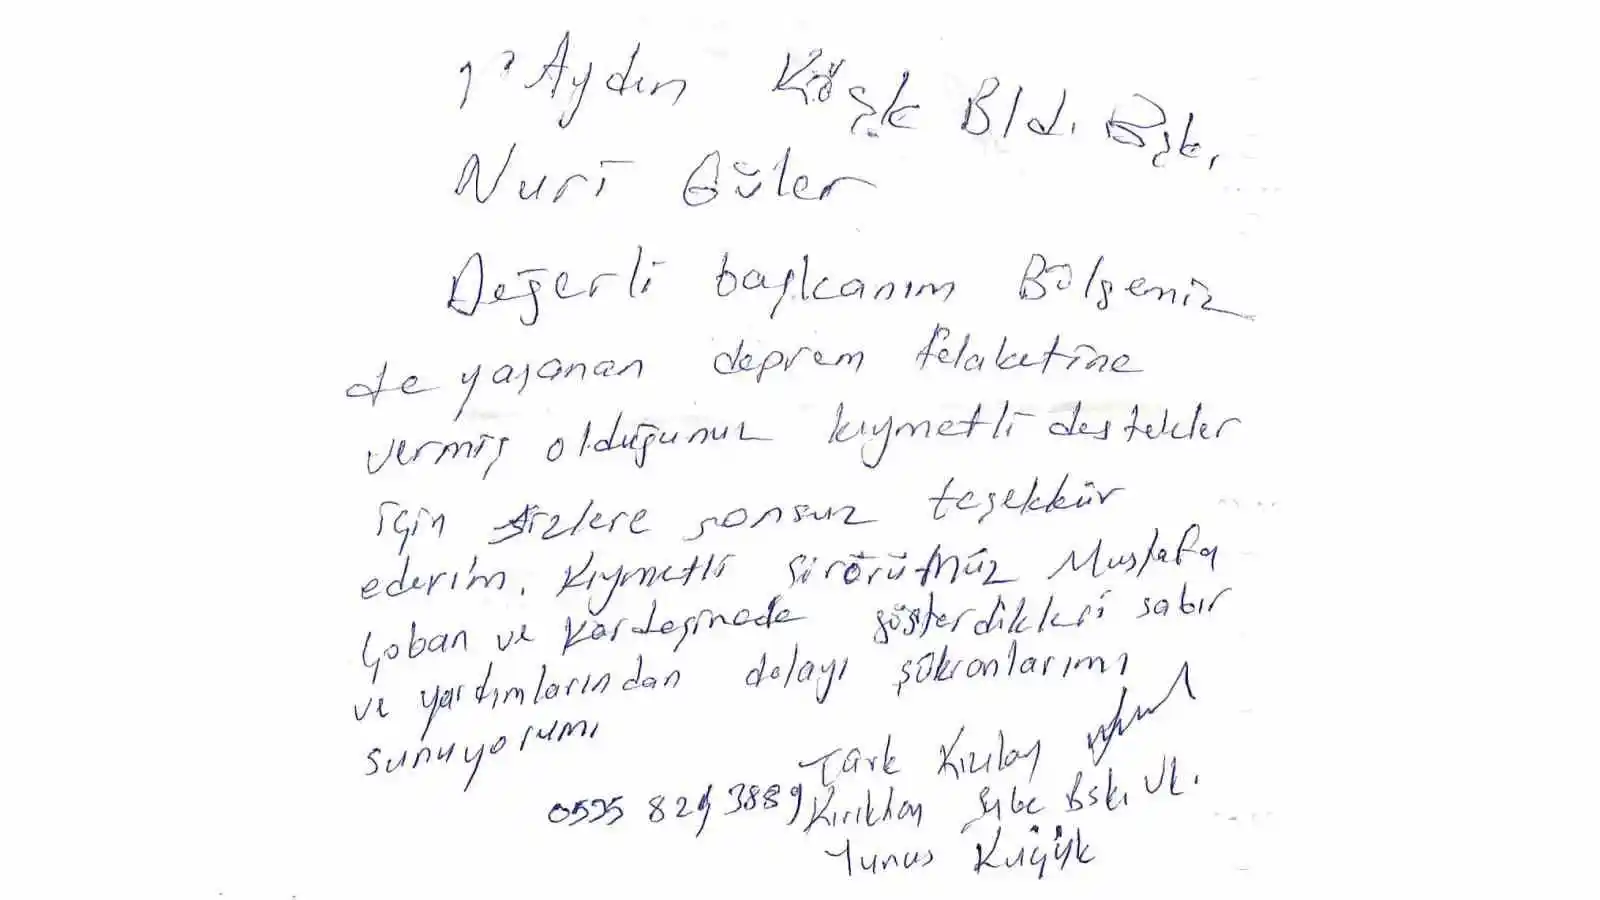 Aydın Köşk Bld. Bşk.
Nuri Güler
Değerli başkanım Bölgemiz
de yaşanan deprem felaketine
vermiş olduğunuz kıymetli destekler
için sizlere sonsuz teşekkür
ederim. Kıymetli şöförümüz Mustafa
Çoban ve Kardeşinede gösterdikleri sabır
ve yardımlarından dolayı şükranlarımı
sunuyorum
Türk Kızılay
0535 829 3889 Kırıkhan Şube Bşk. Vk.
Yunus Küçük